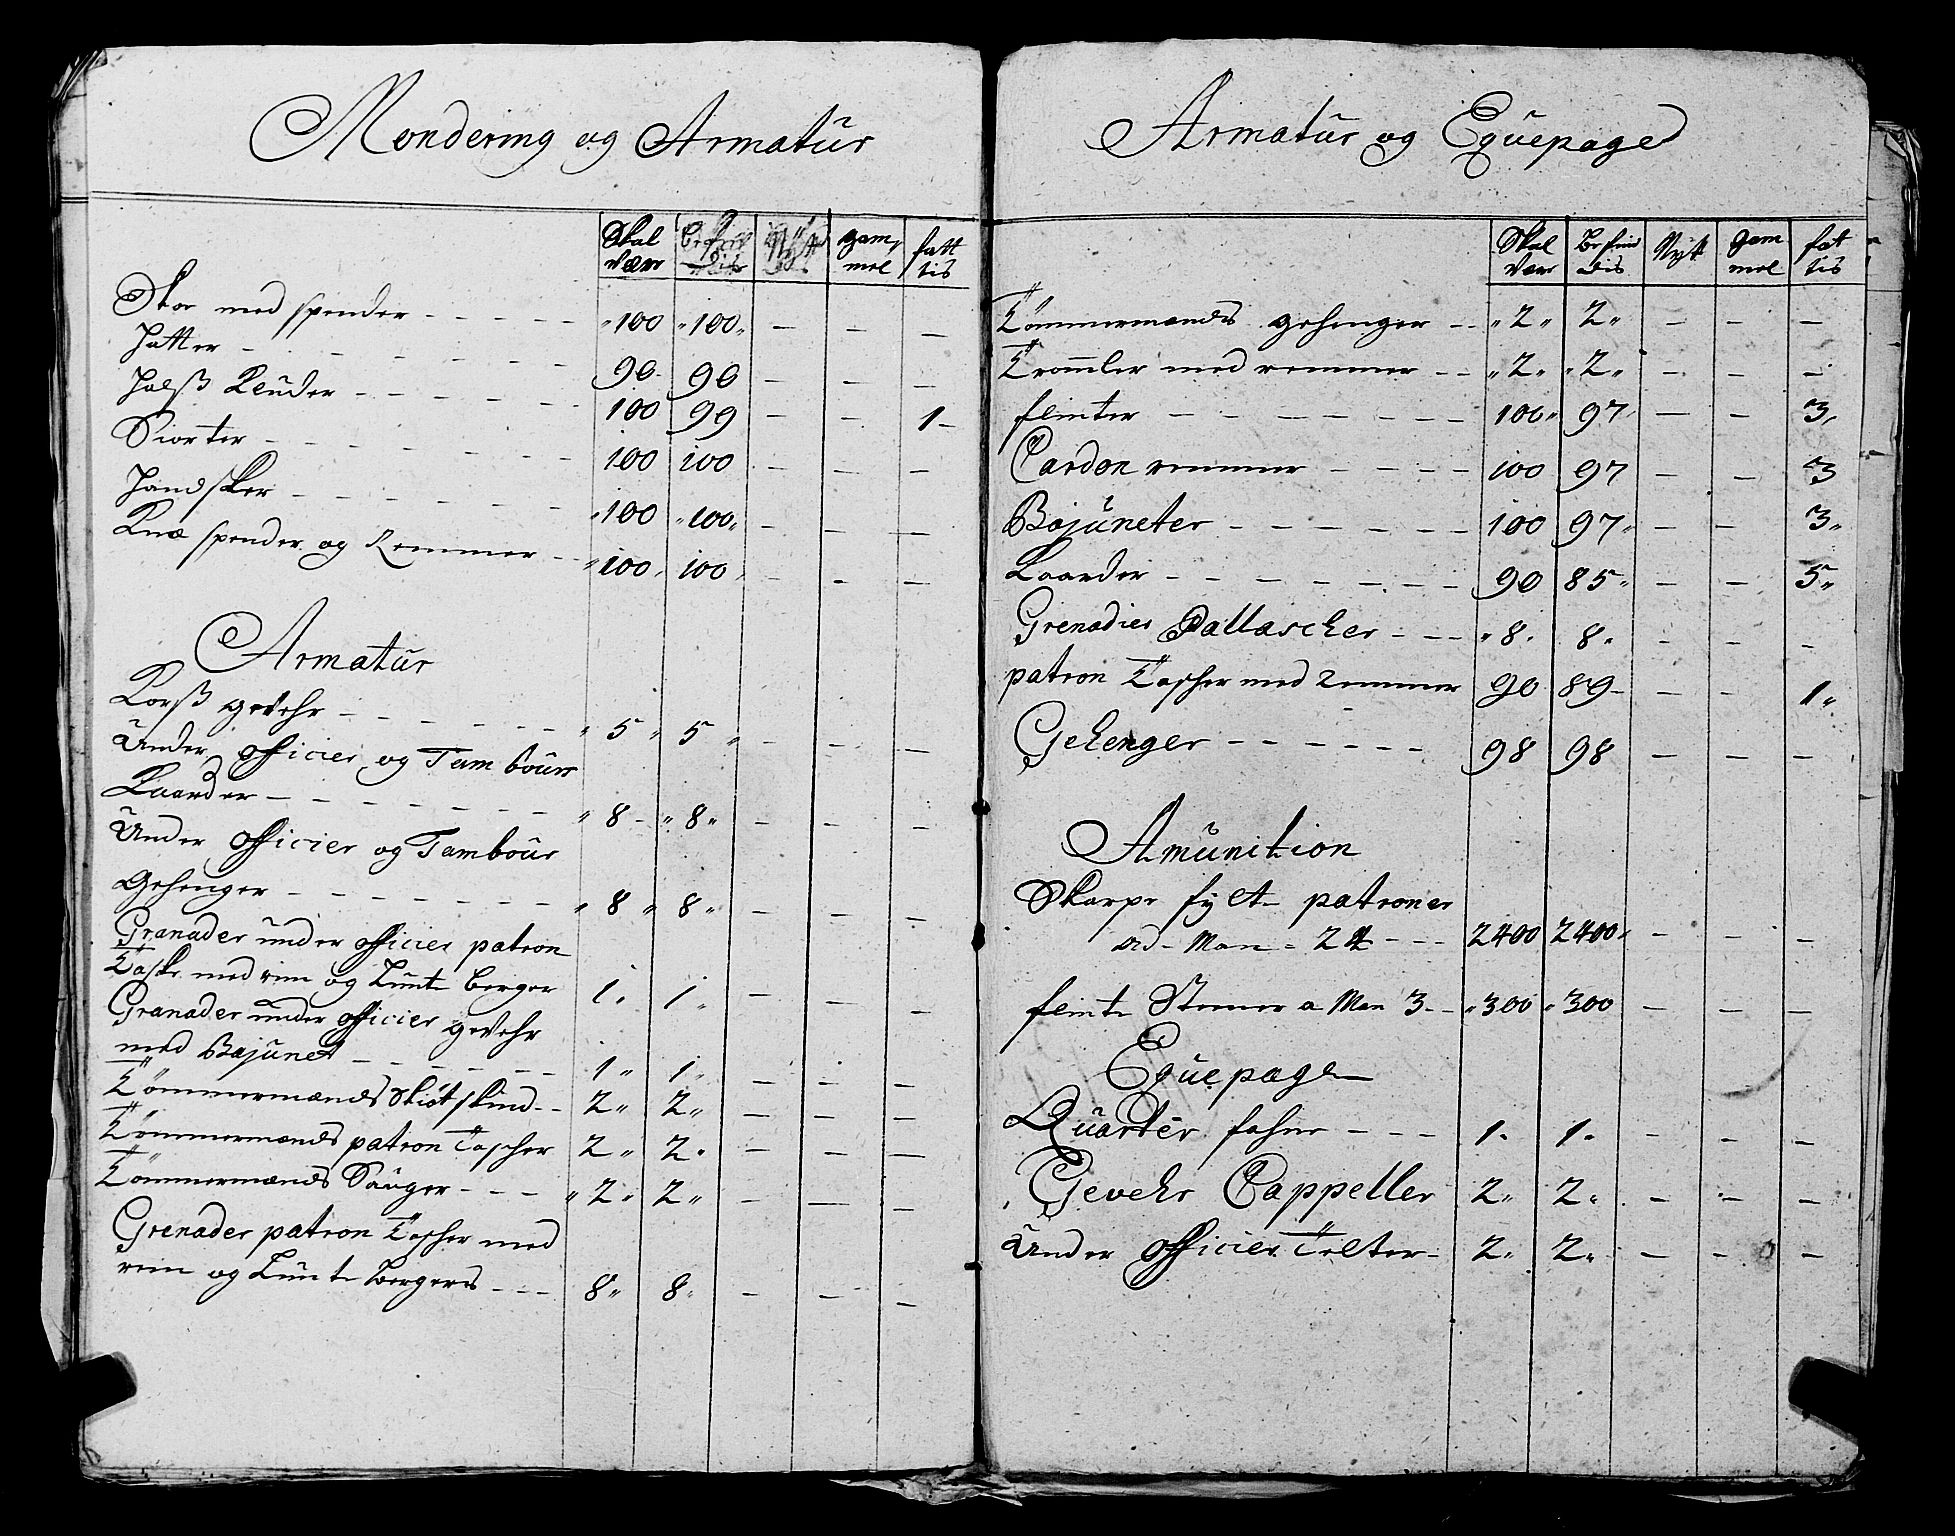 Mondering og Armatur
Skal være Befindis Nytt gammel fattis
Skoe med spender - - - - - „100 „100„ — — —
Hatter - - - - - - 90- 90 — — —
Halß Kluder - - - - - - 100 99 — — 1-
Siorter - - - - - - 100 100 — — —
Handsker - - - - - - „100 „100„ — — —
Knæ spender og Remmer - - „100„ 100„ — — —
Armatur
Korß gevehr - - - - - - „5„ 5„ — — —
Under officier og Tambours
Kaarder - - - - - - - „8- „8„ — — —
Under officier og Tambour
Gehenger - - - - - - „8„ 8„ — — —
Granader under officier patron
Taske med rim og Lunte berger 1„ 1„ — — —
Granader under officier gevehr
med Bajunet - - - - - 1„ 1„ — — —
Tömmermænds Skiötskind - - 2„ 2„ — — —
Tömmermænds patron Tascher 2„ 2„ — — —
Tömmermænds Sauger - - - „2„ 2„ — — —
Grenader patron Tascher med
rim og Lunte bergers - - - 8„ 8„ — — —
Armatur og Equepage
Skal være Befindis Nytt gammel fattis
Tömmermænds gehenger - - „2„ 2„ — — —
Tromler med remmer - - „2„ „2„ — — —
flinter - - - - - - - 100„ 97„ — — 3„
Cardon remmer - - - - 100 97 — — 3
Bajuneter - - - - - - 100 97„ — — 3„
Kaarder - - - - - - - 90 85„ — — 5„
Grenadier Pallascher - - - „8„ 8„ — — —
patron Tascher med Remmer 90 89- — — 1„
Gehenger - - - - - - 98 98 — — —
Amunition
Skarpe fylte patroner
ad Man - 24 - - - 2400 2400„ — — —
flinte Steener a Man 3 - - „300 „300 — — —
Equepage
Quarteer fahne - - - 1„ 1„ — — —
Gevehr Cappeller 2„ 2„ — — —
Under officier Telter - 2„ 2„ — — —